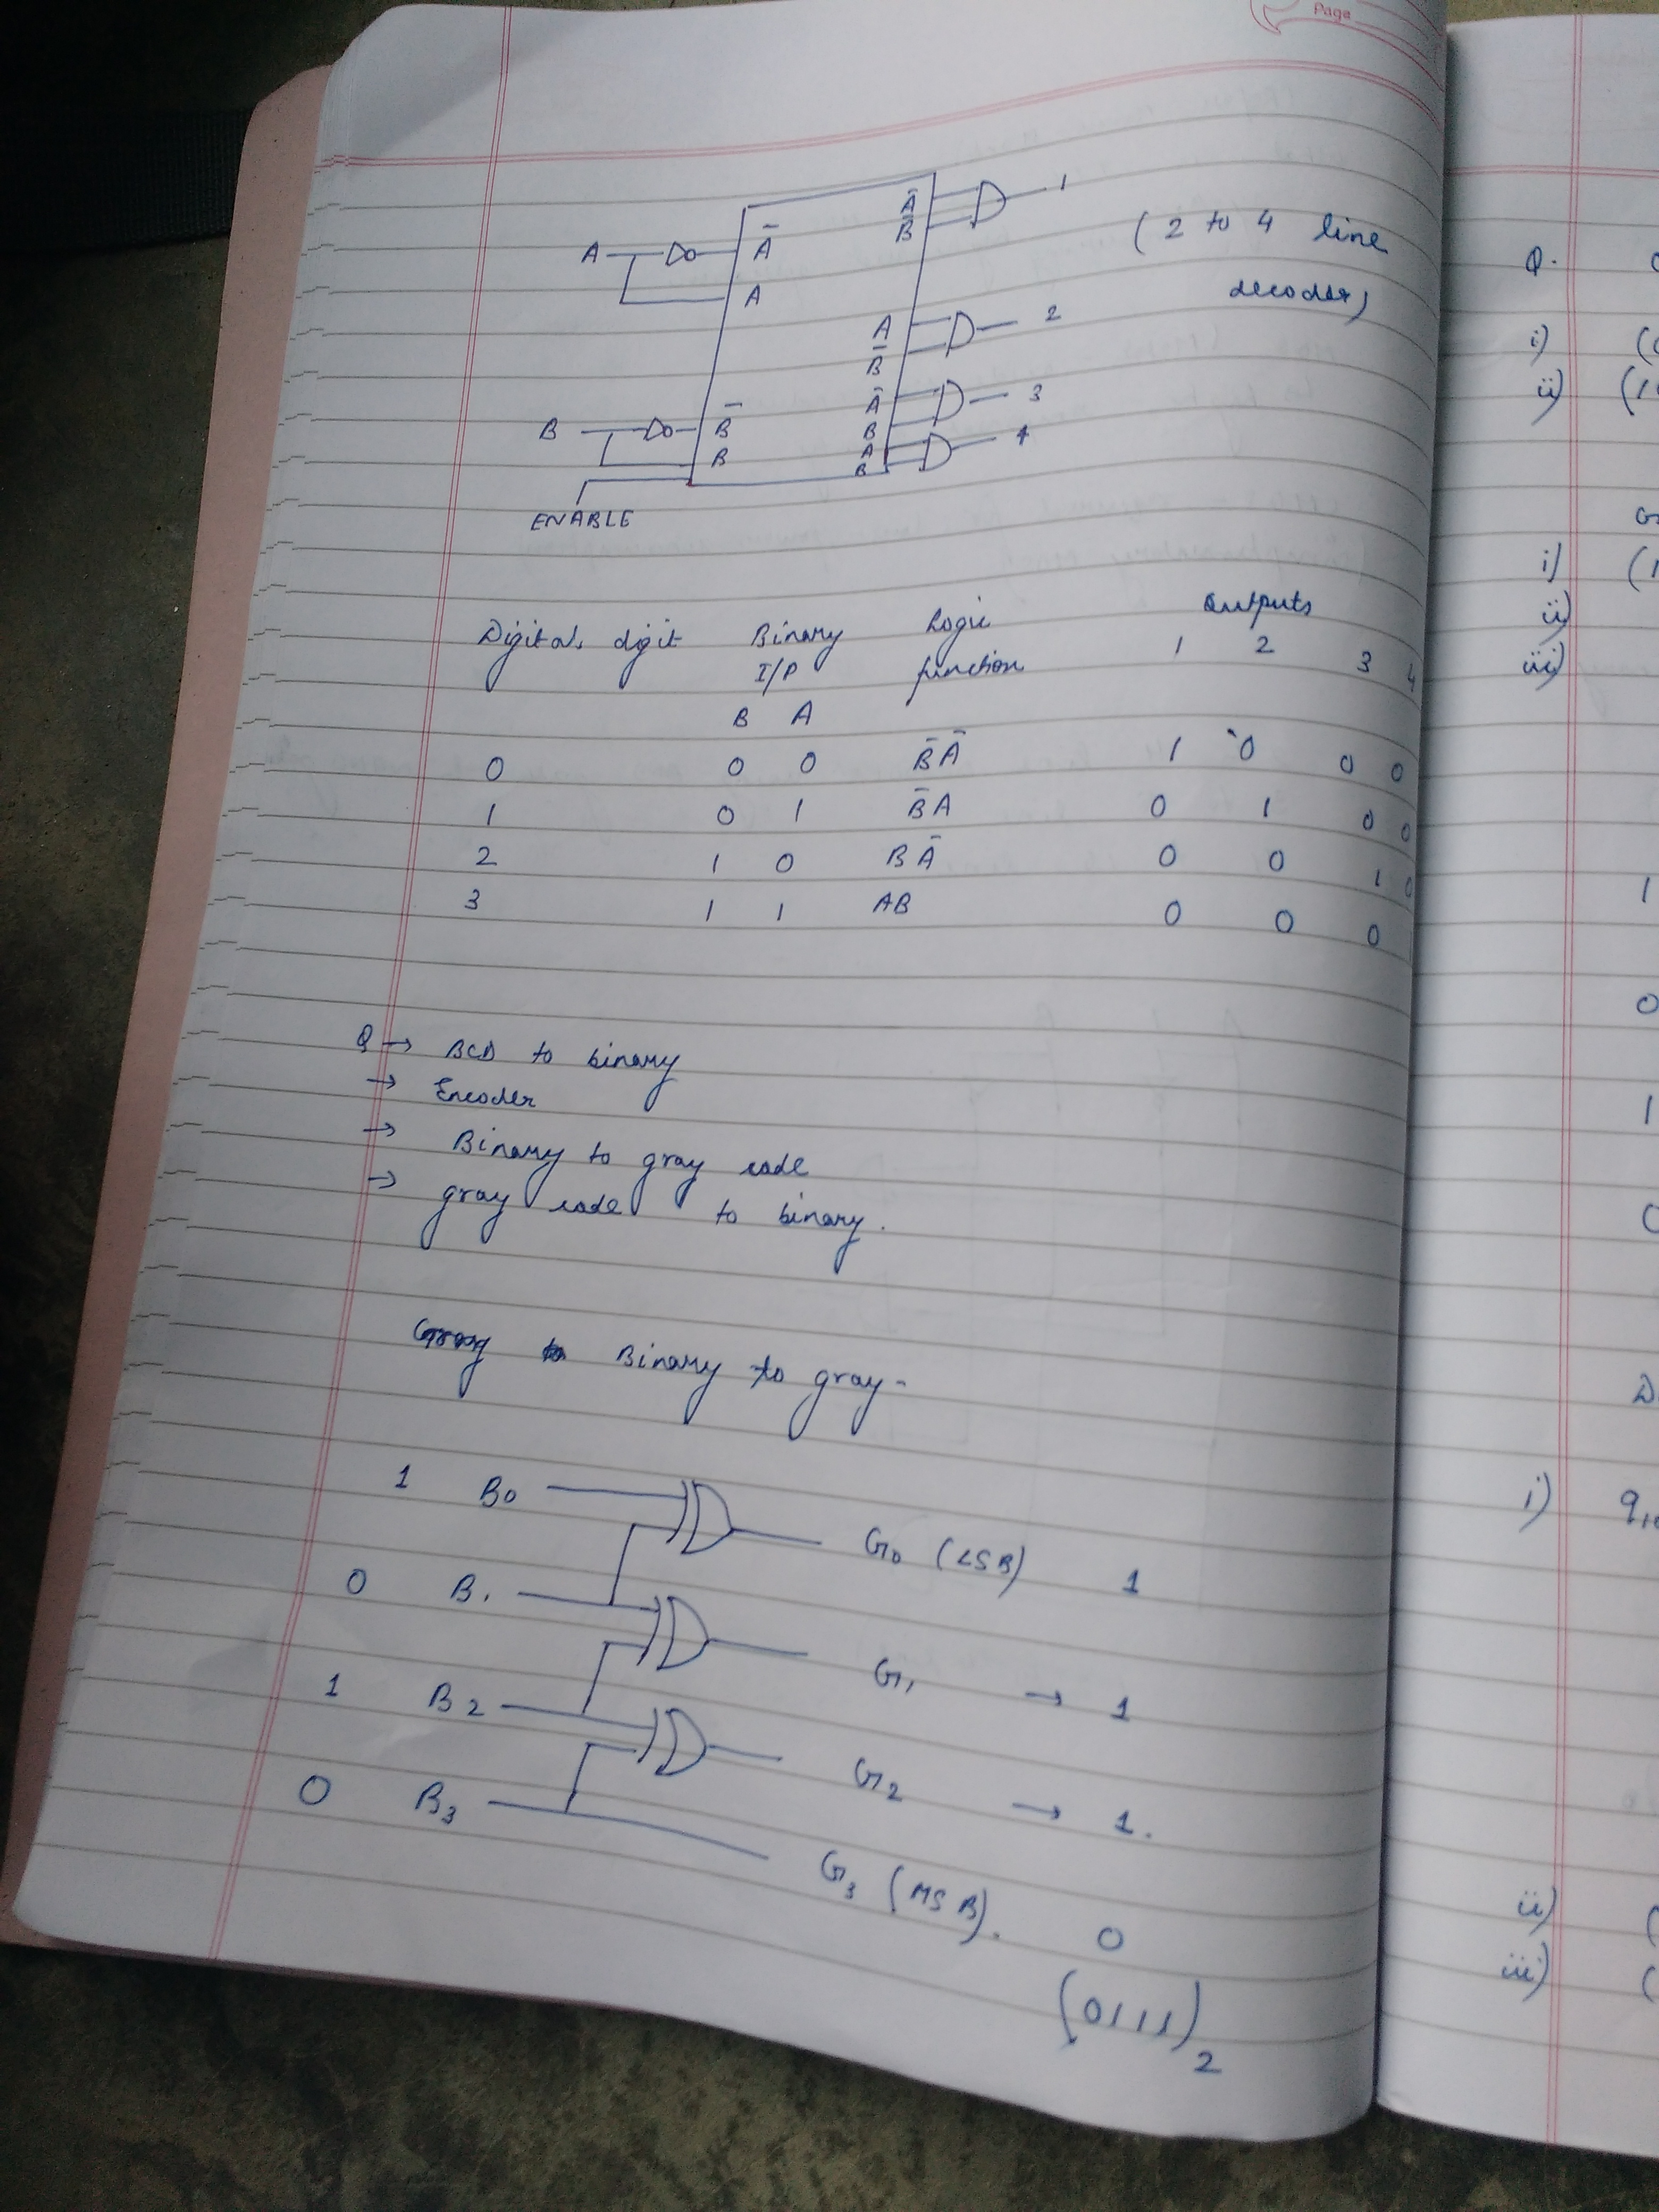 Page
Ā
B̄
1
A
Ā
A
( 2 to 4 line
decoder)
A
B̄
2
Ā
B
3
B
B̄
B
A
B
4
ENABLE
Digital digit Binary I/P Logic function Outputs
1 2 3 4
B A
0 0 0 B̄ Ā 1 0 0 0
1 0 1 B̄ A 0 1 0 0
2 1 0 B Ā 0 0 1 0
3 1 1 AB 0 0 0
Q → BCD to binary
→ Encoder
→ Binary to gray code
→ gray code to binary.
Binary to gray-
1 B0 G0 (LSB) 1
0 B1 G1 → 1
1 B2 G2 → 1.
0 B3 G3 (MSB). 0
(0111)2
Q.
i)
ii)
i)
ii)
iii)
1
0
1
i)
ii)
iii)